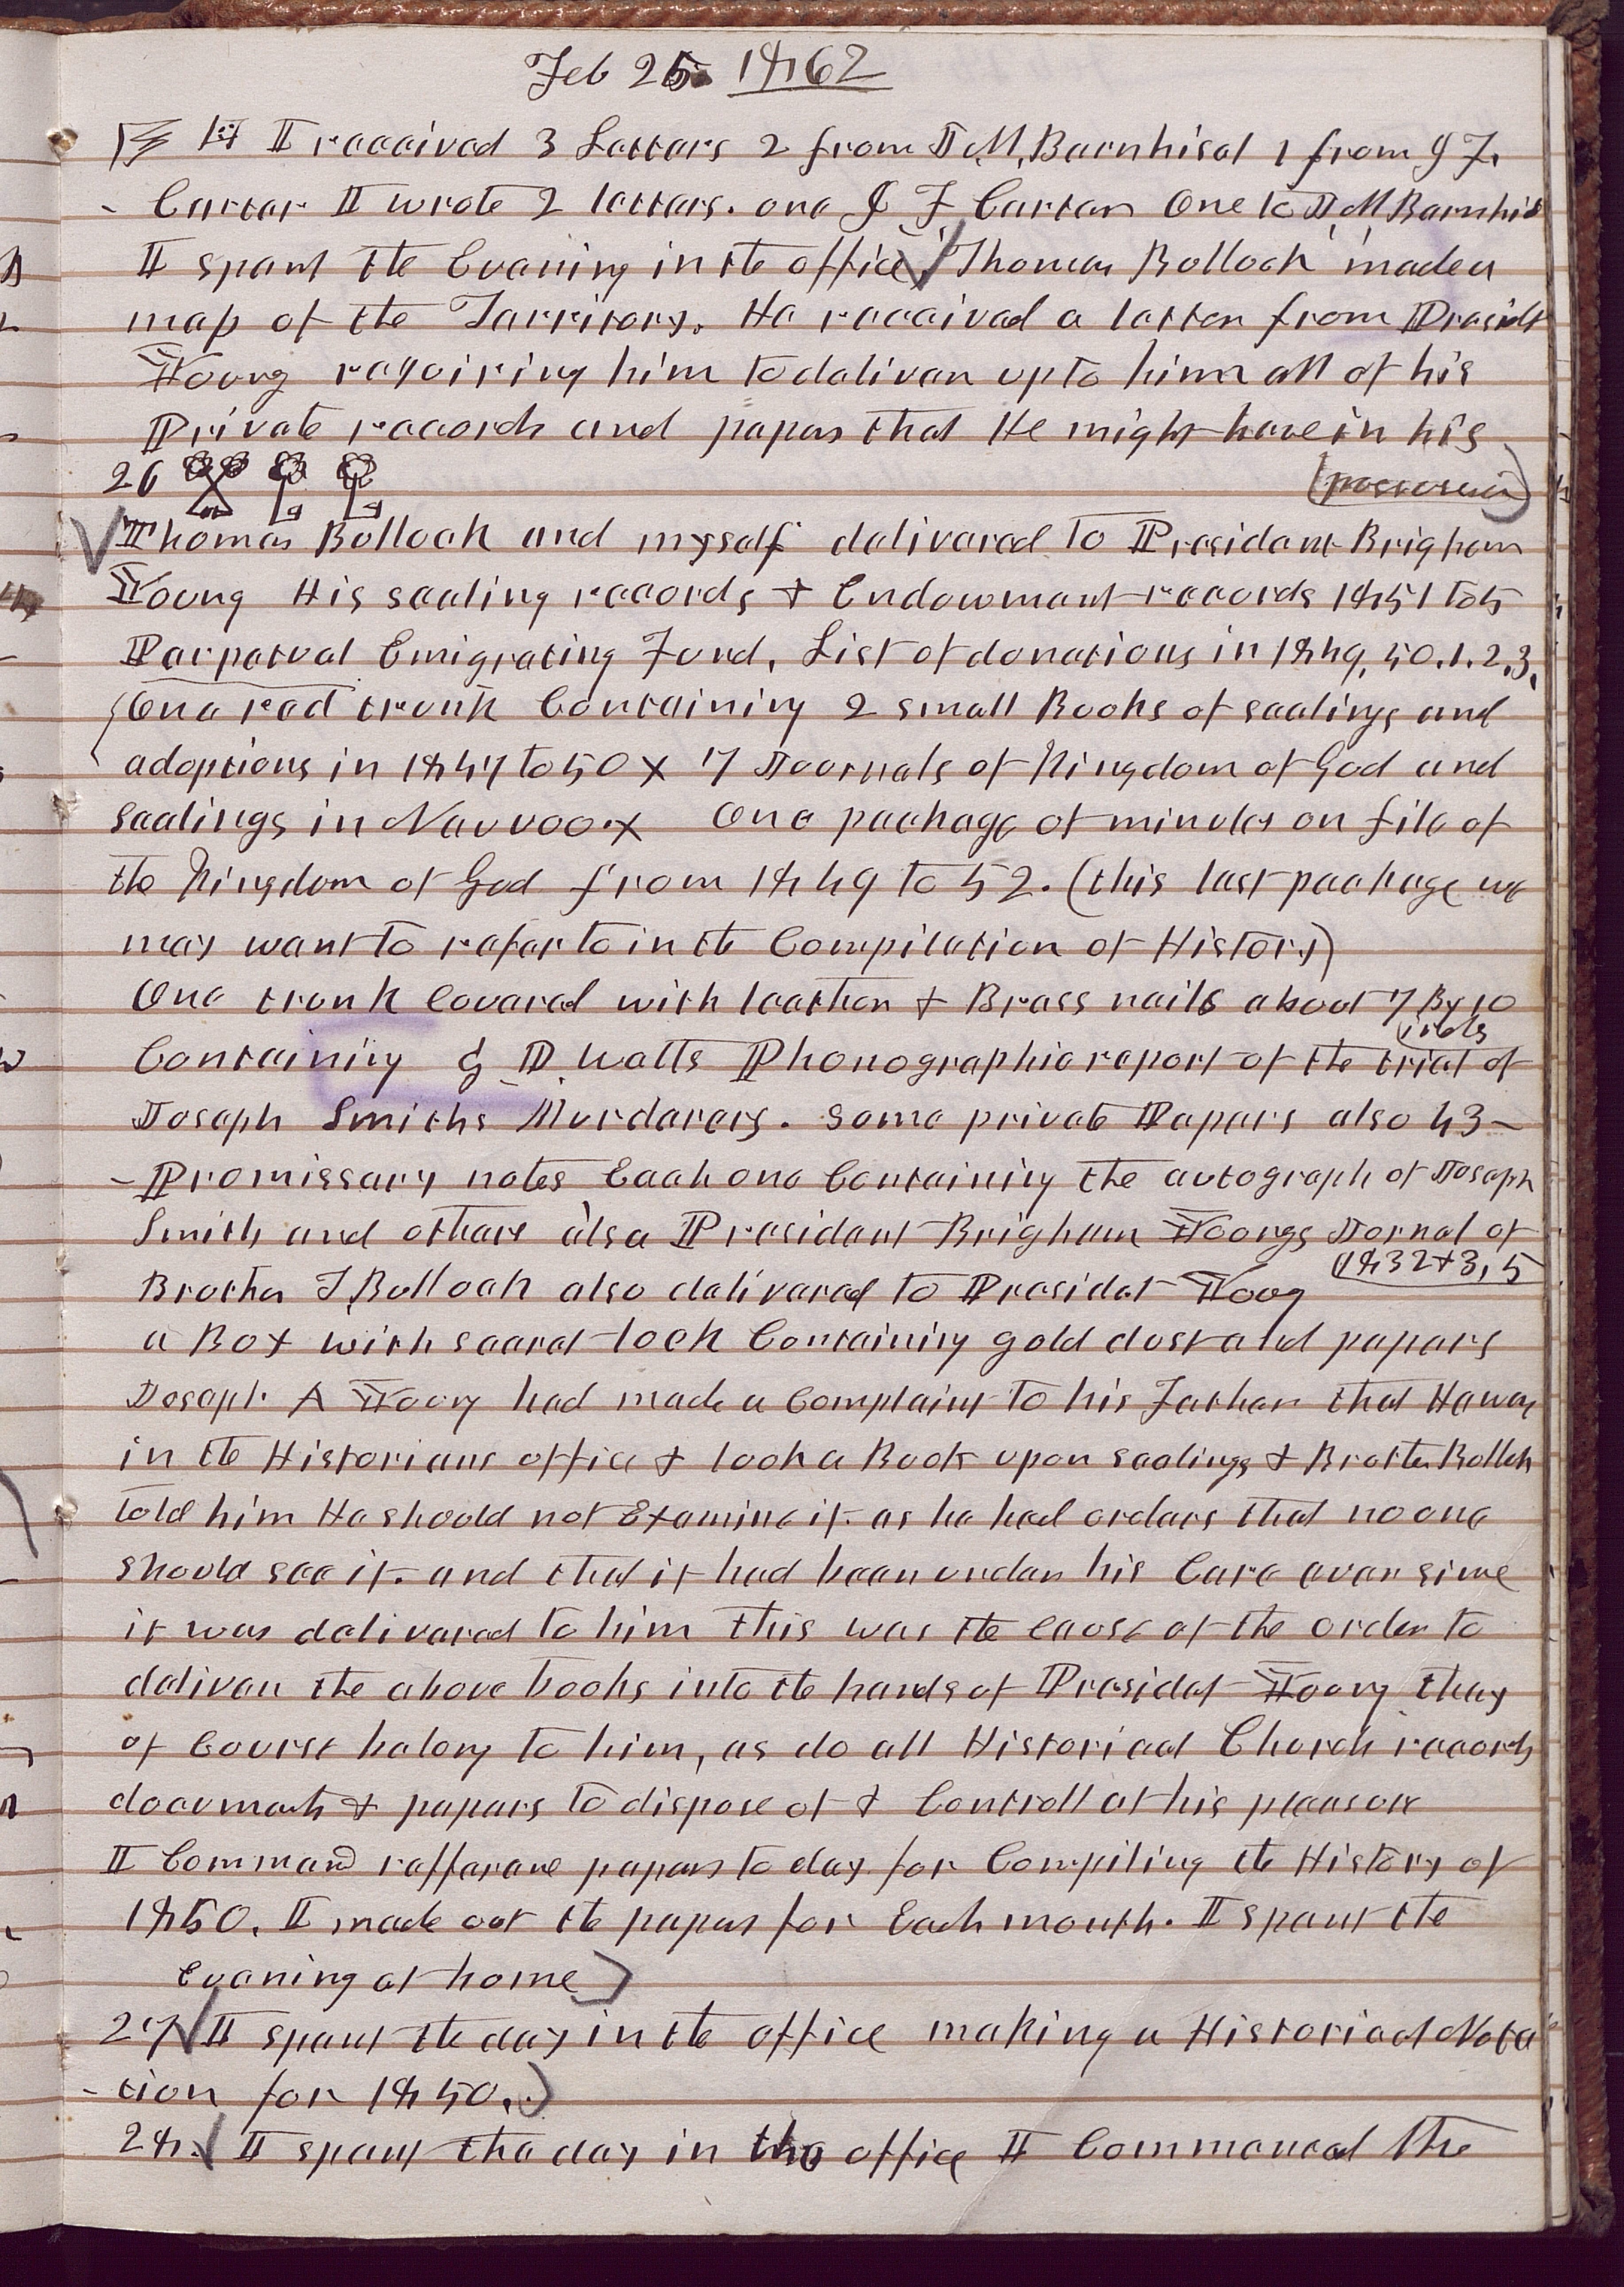 Feb 25 1862
I received 3 Letters 2 from J M, Barnhisel 1 from G F,
- Carter I wrote 2 letters. one G F Carter One to J M Barnhis
I spent the Evening in the office Thomas Bullock made a
map of the Territory. He received a letter from Presidt
Young requiring him to deliver up to him all of his
Private records and papers that He might have in his
(possession)
26
Thomas Bullock and myself delivered to President Brigham
Young His sealing records & Endowment records 1851 to 5
Perpetual Emigrating Fund, List of donations in 1849, 50.1.2.3,
One red trunk Containing 2 small Books of sealings and
adoptions in 1847 to 50 X 7 Journals of Kingdom of God and
Sealings in Nauvoo. X One package of minutes on file of
the Kingdom of God from 1849 to 52. (this last package we
may want to refer to in the Compilation of History)
One trunk Covered with leather & Brass nails about 7 By 10
inches
Containing G D. Watts Phonographic report of the trial of
Joseph Smiths Murderers. Some private Papers also 43 -
- Promissary notes Each one Containing the autograph of Joseph
Smith and others also President Brigham Youngs Jornal of
1832 & 3, 5
Brother T Bullock also delivered to Presidet Young
a Box with secret lock Containing gold dust and papers
Joseph A Young had made a Complaint to his Father that He was
in the Historians office & took a Book upon sealings & Brother Bullok
told him He should not Examine it as he had orders that no one
should see it. and that it had been under his Care ever since
it was delivered to him this was the cause of the order to
deliver the above books into the hands of Presidet Young they
of Course belong to him, as do all Historical Church records
documents & papers to dispose of & Controll at his pleasure
I Commend refferance papers to day for Compiling the History of
1850. I made out the papers for Each month. I spent the
Evening at home
27 I spent the day in the office making a Historical Nota
-tion for 1850.
28. I spent the day in the office I Commenced the